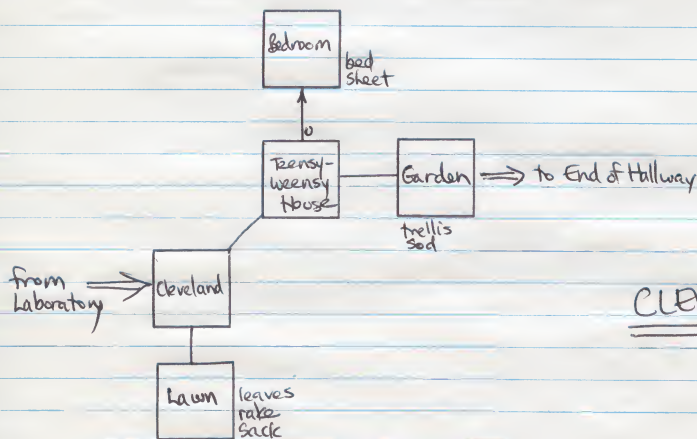 Bedroom
bed
sheet
Teensy-
Weensy
House
Garden
to End of Hallway
trellis
sod
from
Laboratory
Cleveland
CLE
Lawn
leaves
rake
sack